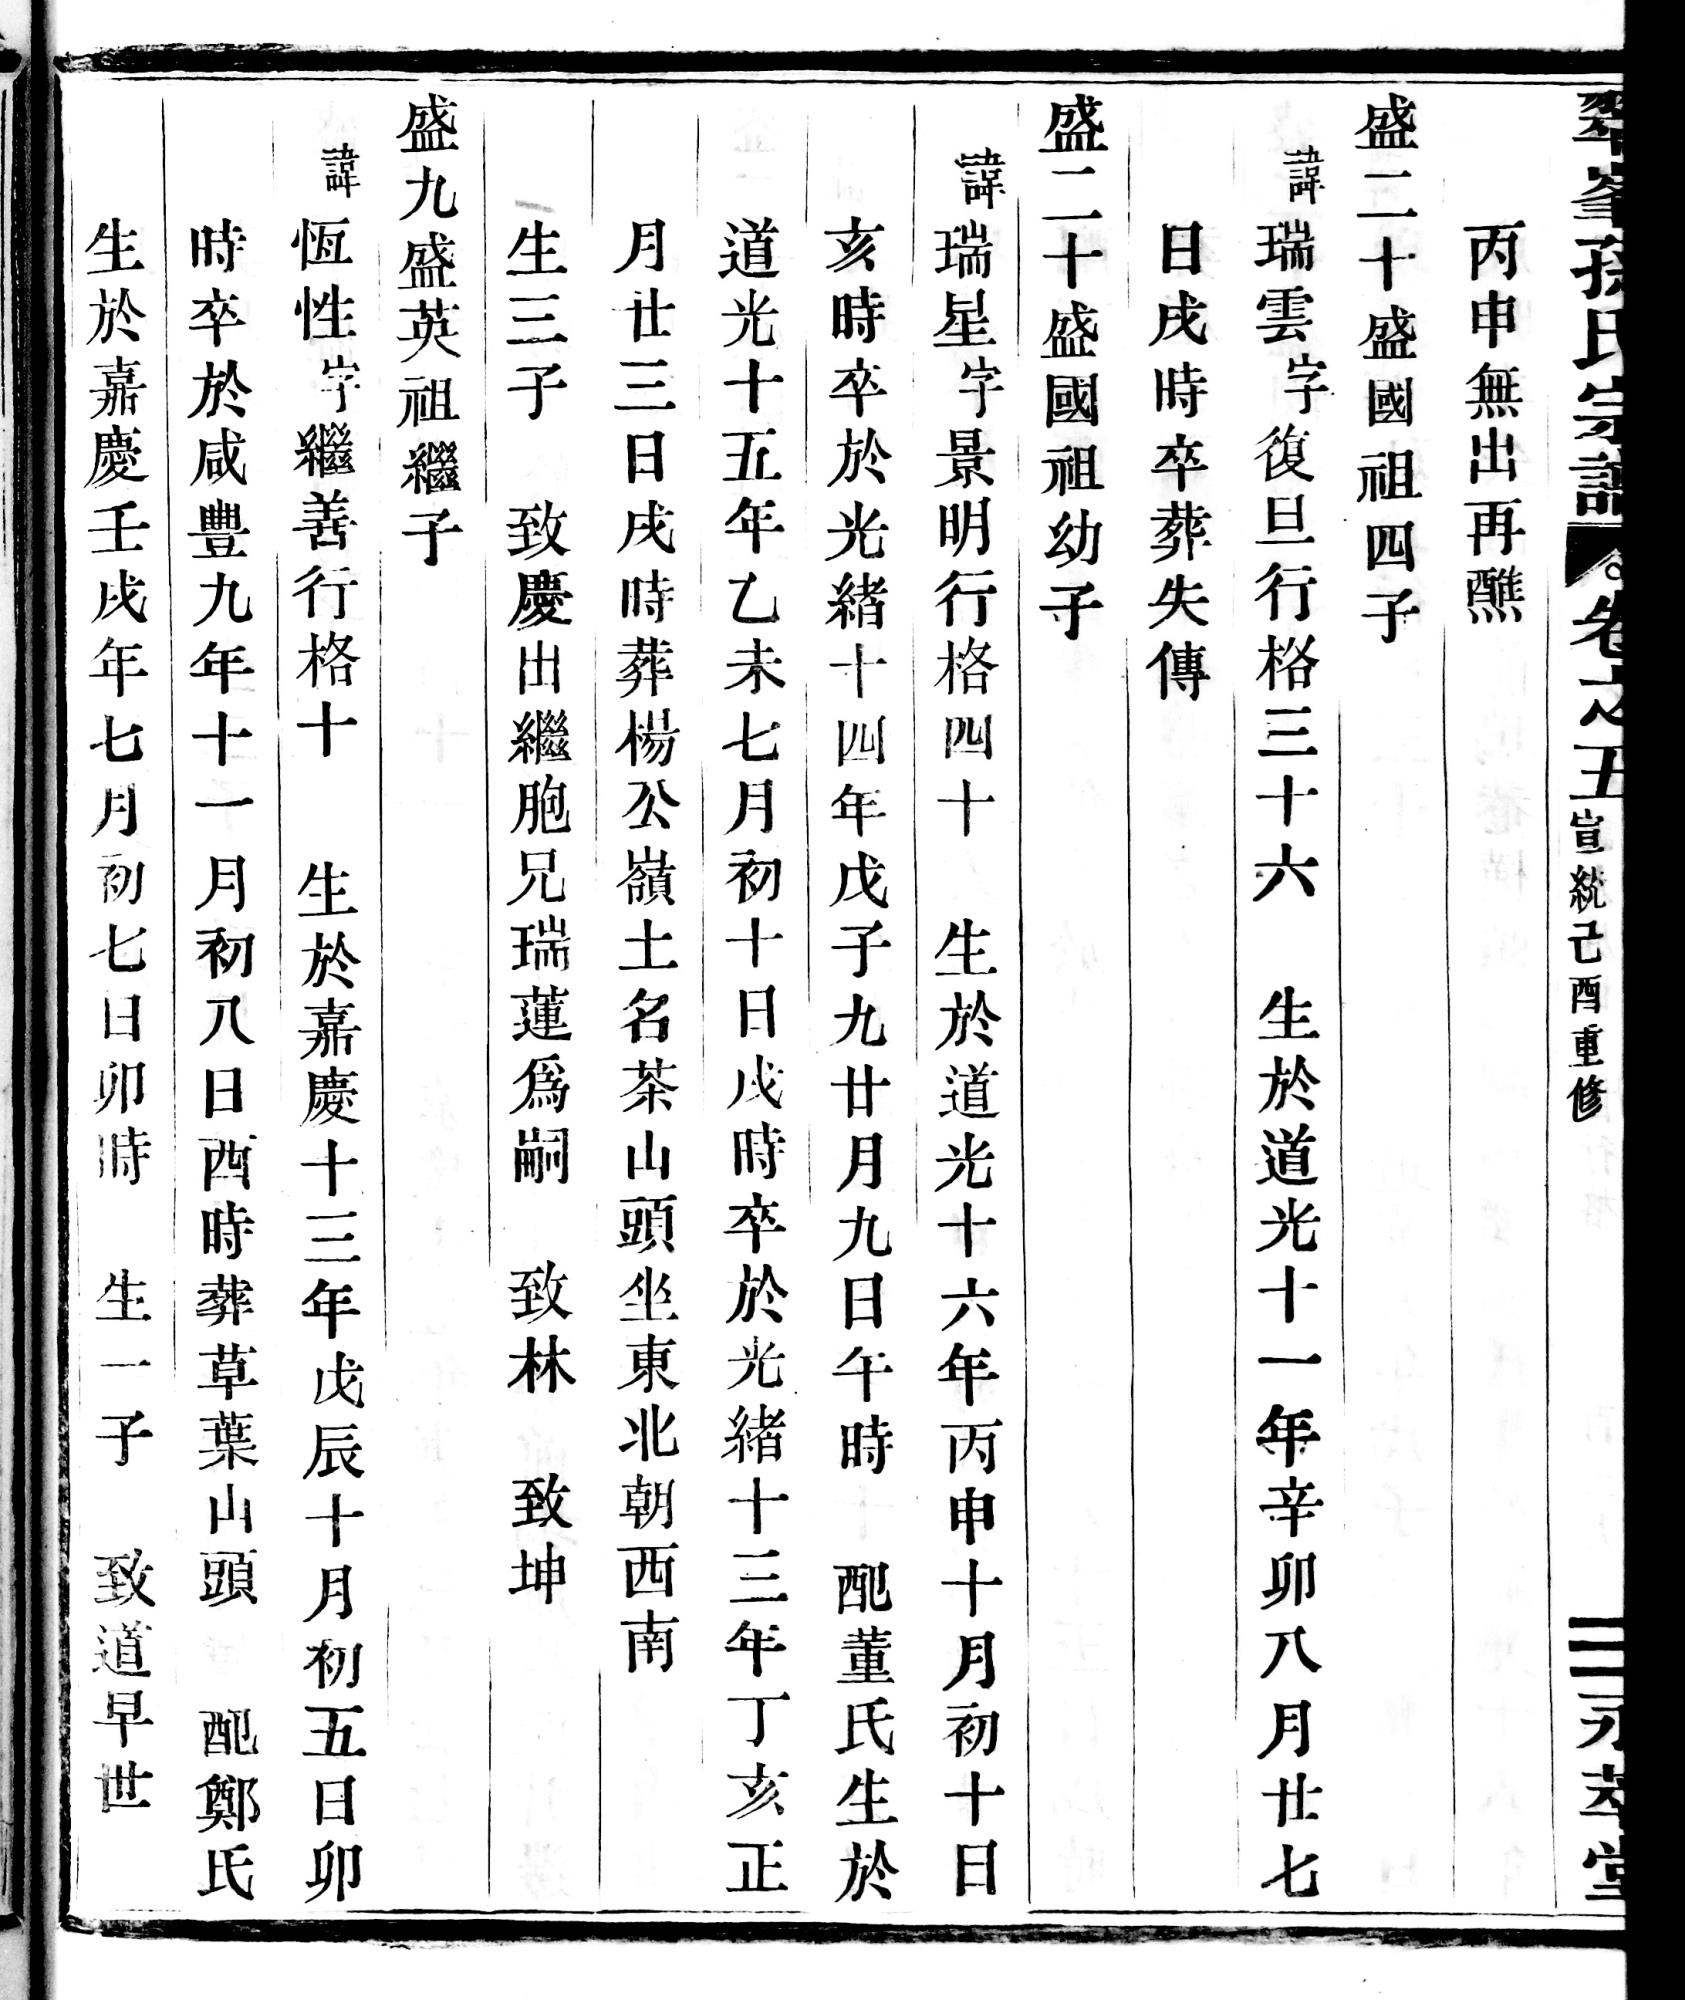 翠峯孫氏宗譜 卷之五 宣統己酉重修 二 永萃堂
丙申無出再醮
盛二十盛國祖四子
諱瑞雲字復旦行格三十六 生於道光十一年辛卯八月廿七
日戌時卒葬失傳
盛二十盛國祖幼子
諱瑞星字景明行格四十 生於道光十六年丙申十月初十日
亥時卒於光緒十四年戊子九廿月九日午時 配董氏生於
道光十五年乙未七月初十日戌時卒於光緒十三年丁亥正
月廿三日戌時葬楊公嶺土名茶山頭坐東北朝西南
生三子 致慶出繼胞兄瑞蓮爲嗣 致林 致坤
盛九盛英祖繼子
諱恆性字繼善行格十 生於嘉慶十三年戊辰十月初五日卯
時卒於咸豐九年十一月初八日酉時葬草葉山頭 配鄭氏
生於嘉慶壬戌年七月初七日卯時 生一子 致道早世